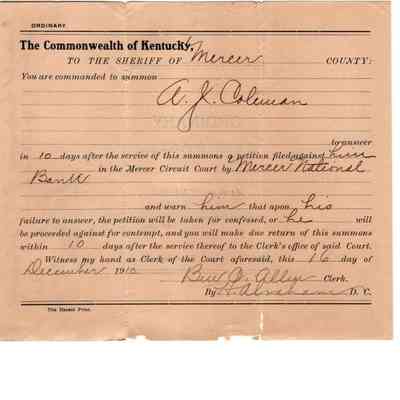 ORDINARY.
The Commonwealth of Kentucky,
TO THE SHERIFF OF Mercer COUNTY:
You are commanded to summon
A. K. Coleman
to answer
in 10 days after the service of this summons a petition filed against him
in the Mercer Circuit Court by Mercer National
Bank
and warn him that upon his
failure to answer, the petition will be taken for confessed, or he will
be proceeded against for contempt, and you will make due return of this summons
within 10 days after the service thereof to the Clerk's office of said Court.
Witness my hand as Clerk of the Court aforesaid, this 16 day of
December 1910 Ben C. Allin Clerk.
By Abraham D. C.
The Herald Print.